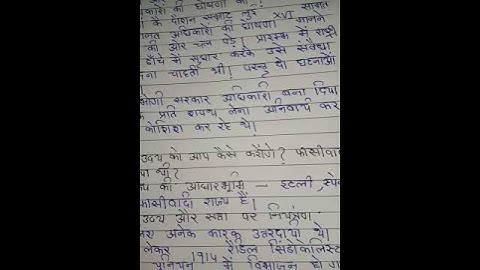 अधिकारों की घोषणा की।
के दौरान सम्राट लुई XVI सामंत
अधिकारों की घोषणा मानने
की ओर चल पड़े। प्रारम्भ में राष्ट्री
ढाँचे में सुधार करके उसे संवैधा
चाहती थी। परन्तु दो घटनाओं
सरकार अधिकारी बना दिया
के प्रति शपथ लेना अनिवार्य कर
कोशिश कर रहे थे।
उदय को आप कैसे करोगे? फासीवा
की आधारभूमि — इटली, स्पे
फासीवादी राज्य हैं।
उदय और सत्ता पर नियंत्रण
अनेक कारक उत्तरदायी थे।
लेकर 1914 सिंडीकोलिस्ट
यूनियन में विभाजन हो ग